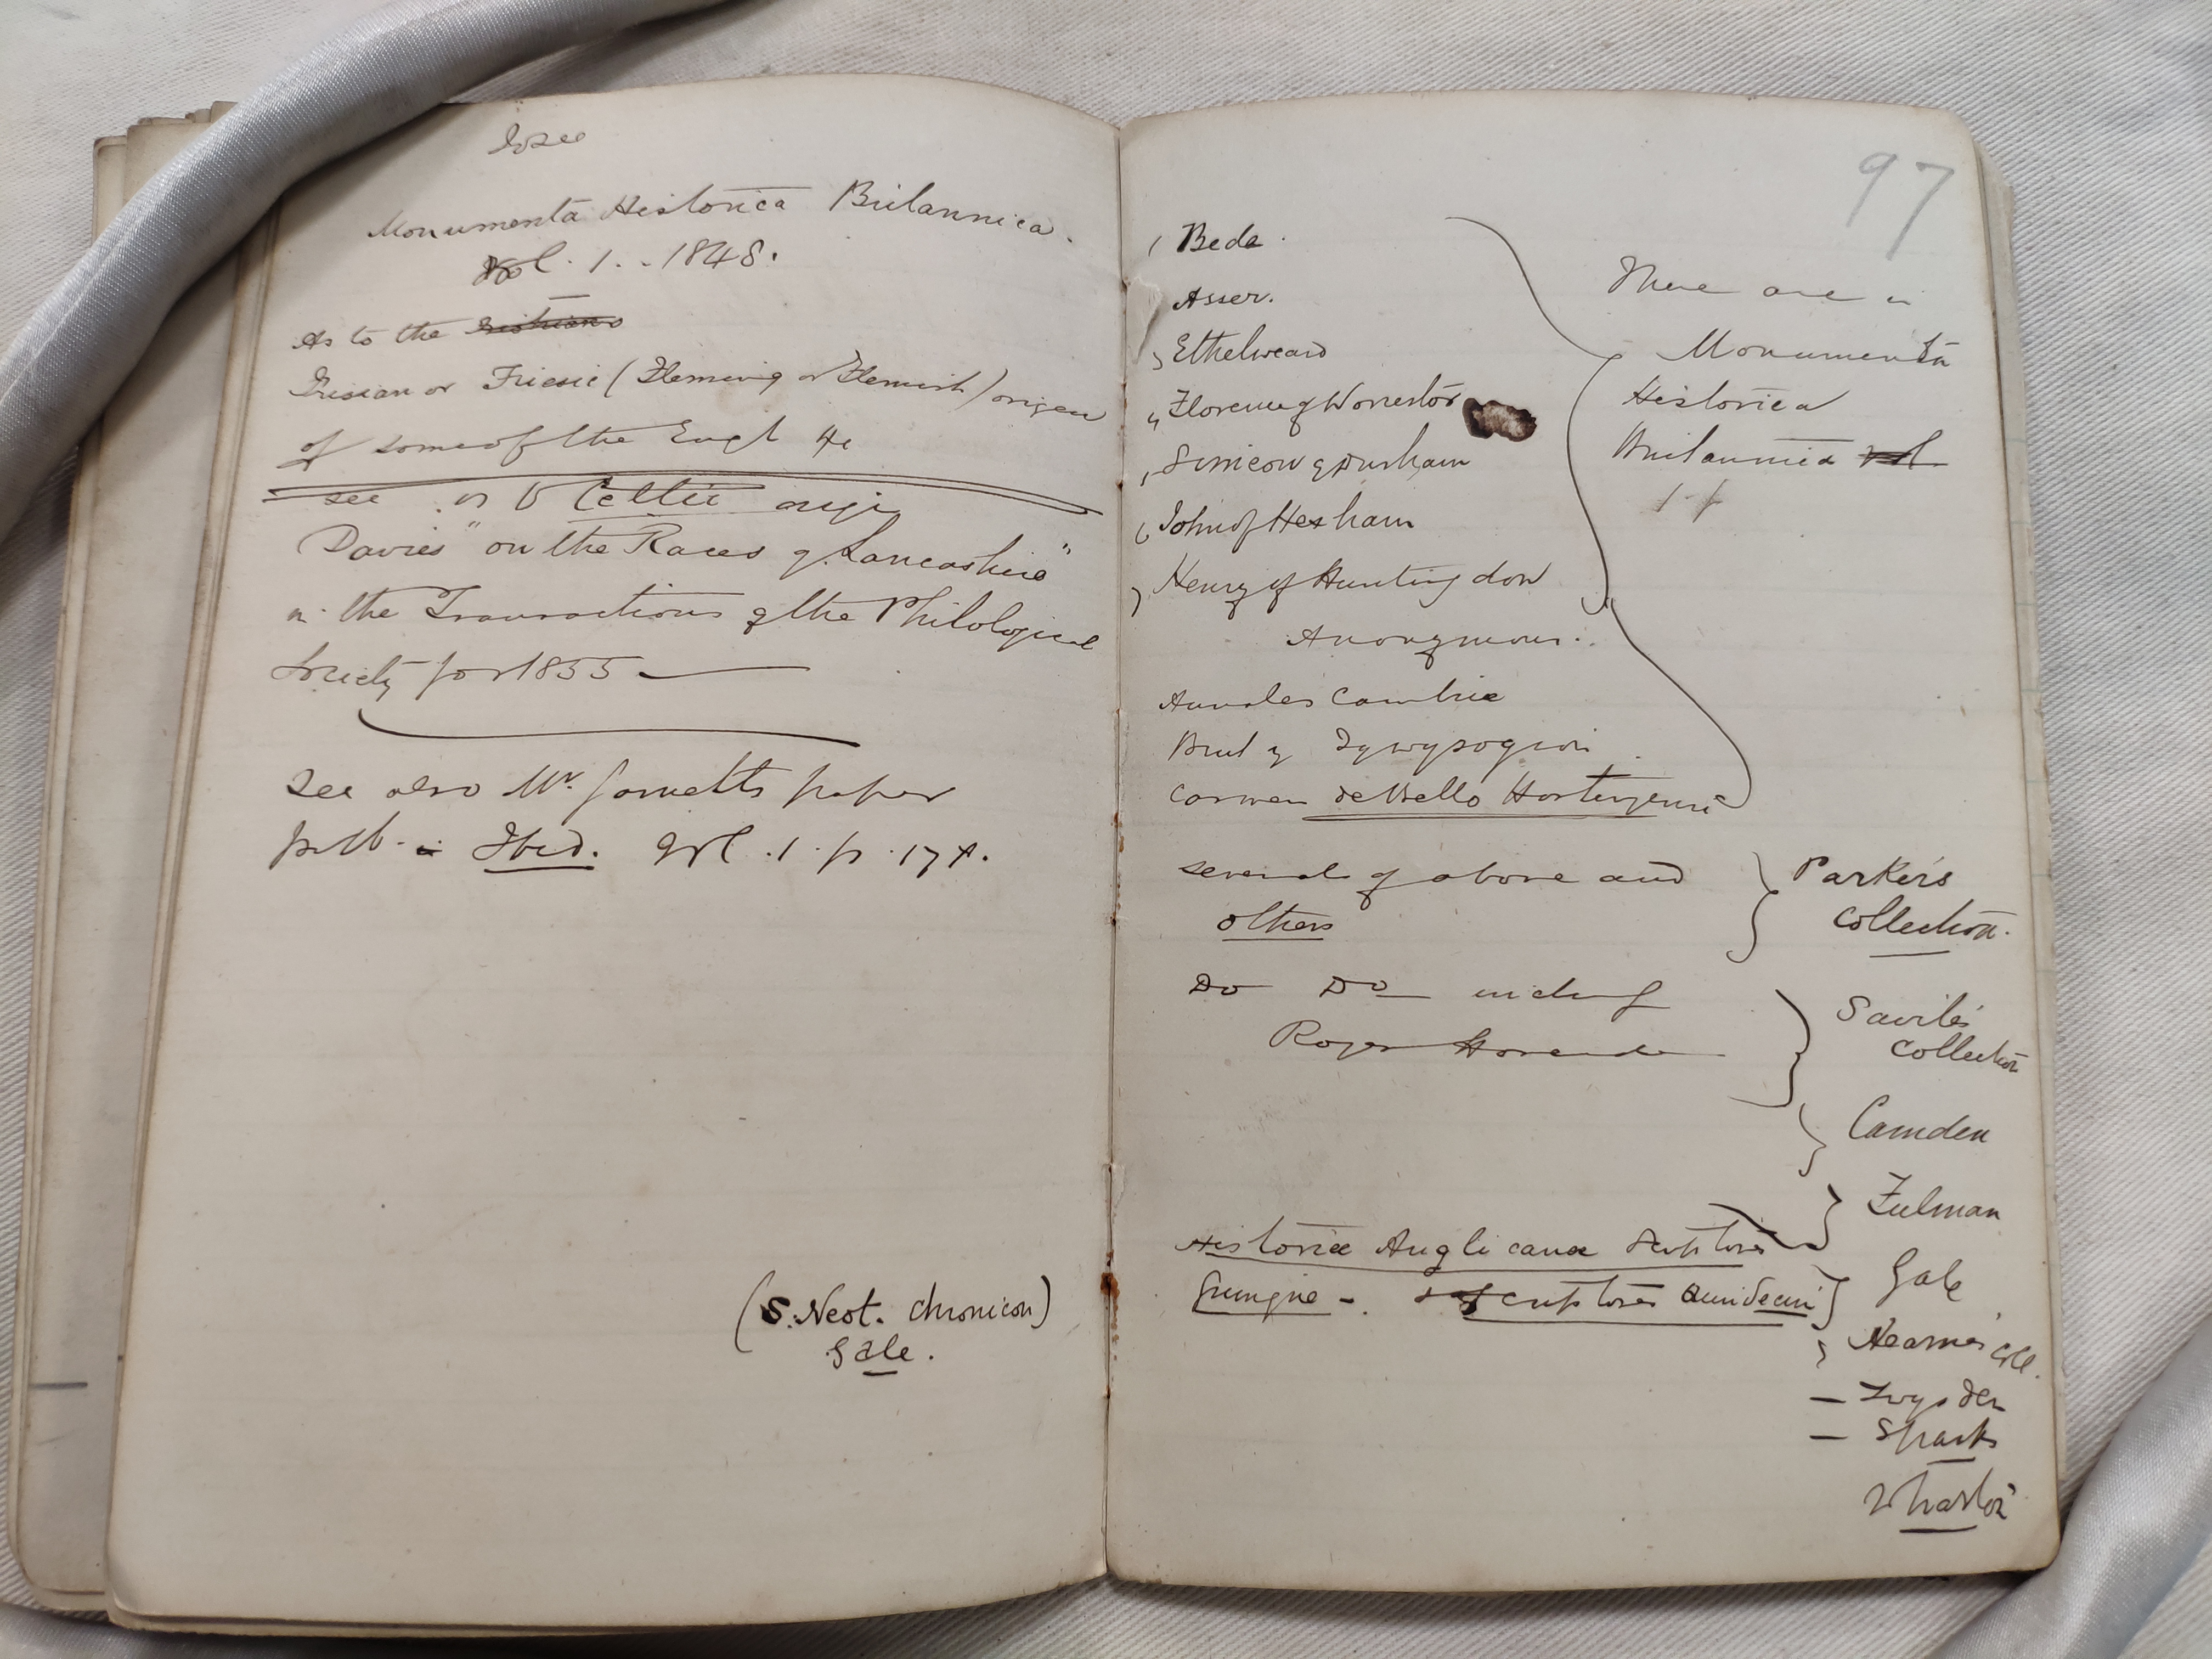 to see
Monumenta Historica Britannica.
Vol. 1. . 1848.
As to the
Frisian or Friesic (Fleming or Flemish) origen
of some of the Engl &c
see as to Celtic orign
Davies "on the Races of Lancashire"
in the Transactions of the Philological
Society for 1855 —
See also Mr. Garnetts paper
pub. in Ibid. Vol. 1. p. 17
(S. Neot. Chronicon)
Gale.
97
Bede.
Asser.
Ethelweard
Florence of Worcestor
Simeon of Durham
John of Hexham
Henry of Huntingdon
Anonymous.
Annales Cambrie
Brut y Tywysogion
Carmen de Bello Hastingensi
These are in
Monumenta
Historica
Britannica vol
1
several of above and
others
Parker's
Collection.
Do Do includg
Roger Hovenden
Savile's
Collection
Camden
Fulman
Historiæ Anglicanæ Scriptores
Quinque - . Scriptores Quindecim
Gale
Hearne's Coll.
— Twysden
— Sparks
Wharton